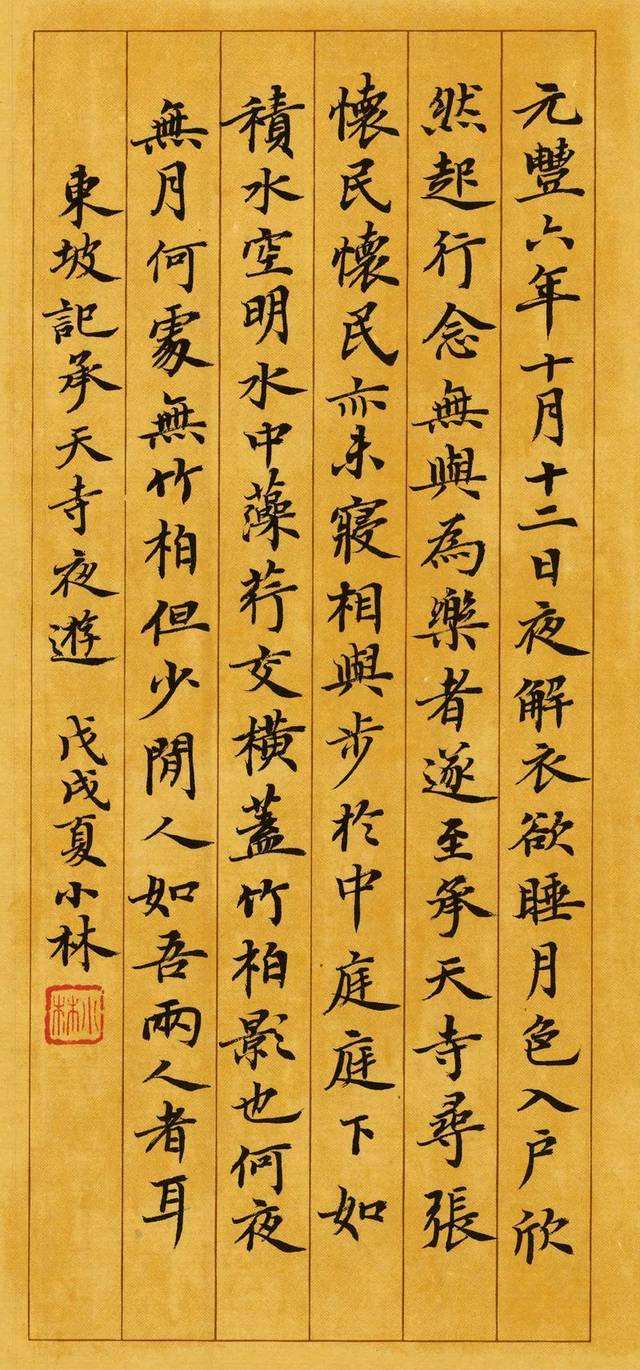 元豐六年十月十二日夜解衣欲睡月色入户欣
然起行念無與為樂者遂至承天寺尋張
懷民懷民亦未寢相與步於中庭庭下如
積水空明水中藻荇交橫蓋竹柏影也何夜
無月何處無竹柏但少閒人如吾兩人者耳
東坡記承天寺夜遊 戊戌夏小林
小林